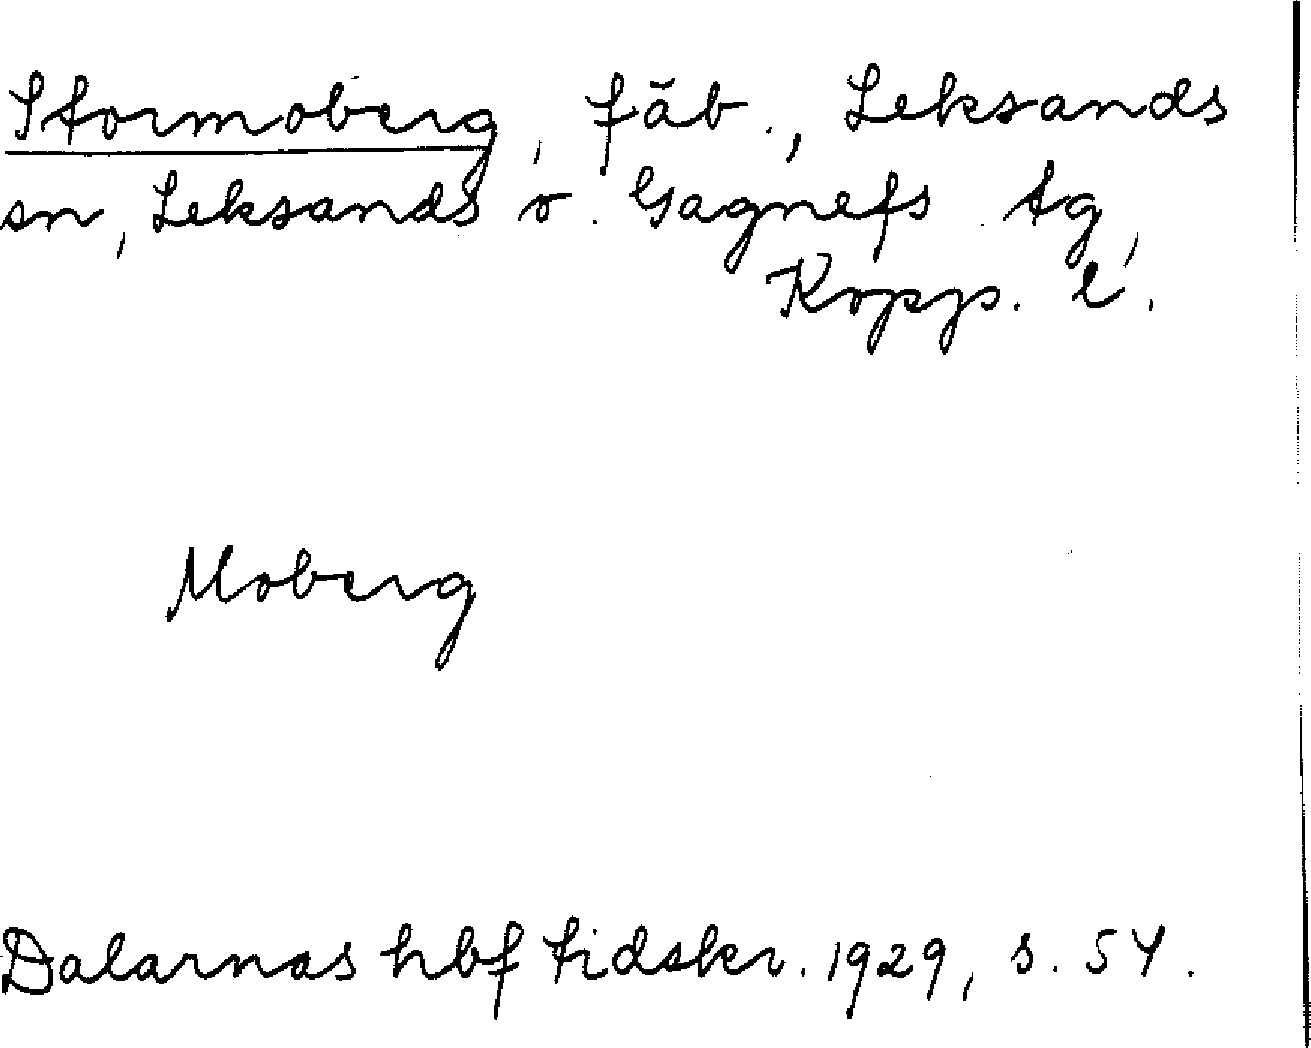 Stormoberg, fäb., Leksands
sn, Leksands o. Gagnefs tg,
Kopp. l.
Moberg
Dalarnas hbf tidskr. 1929, s. 54.